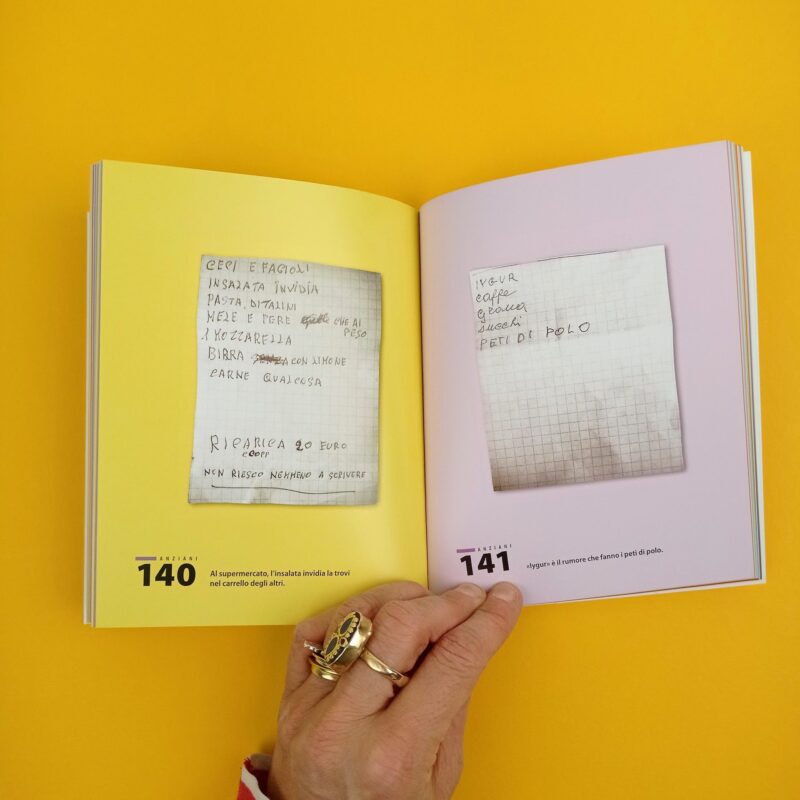 CECI E FAGIOLI
INSALATA INVIDIA
PASTA, DITALINI
MELE E PERE CHE AI
PESO
1 MOZZARELLA
BIRRA SENZA CON LIMONE
CARNE QUALCOSA
RICARICA 20 EURO
COOP
NON RIESCO NEMMENO A SCRIVERE
ANZIANI
140 Al supermercato, l'insalata invidia la trovi
nel carrello degli altri.
IYGUR
caffe
grana
succhi
PETI DI POLO
ANZIANI
141 «Iygur» è il rumore che fanno i peti di polo.